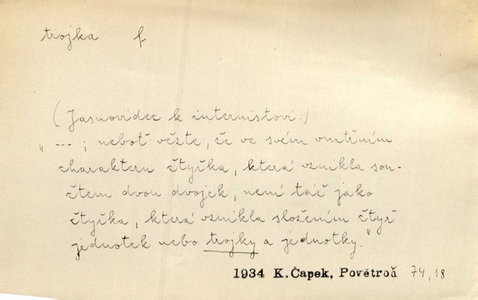 trojka f
(Jasnovidec k internistovi:)
„---; neboť vězte, že ve svém vnitřním
charakteru čtyřka, která vznikla sou-
čtem dvou dvojek, není táž jako
čtyřka, která vznikla složením čtyř
jednotek nebo trojky a jednotky."
1934 K.Čapek, Povětroň 74,18